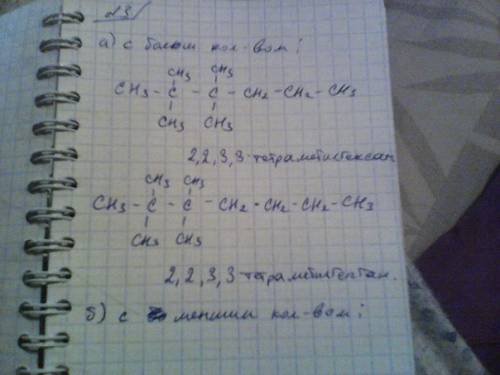 №3
а) с больш кол-вом;
CH3 CH3
CH3 - C - C - CH2 - CH2 - CH3
CH3 CH3
2,2,3,3-тетраметилгексан
CH3 CH3
CH3 - C - C - CH2 - CH2 - CH2 - CH3
CH3 CH3
2,2,3,3-тетраметилгептан.
б) с меншим кол-вом;